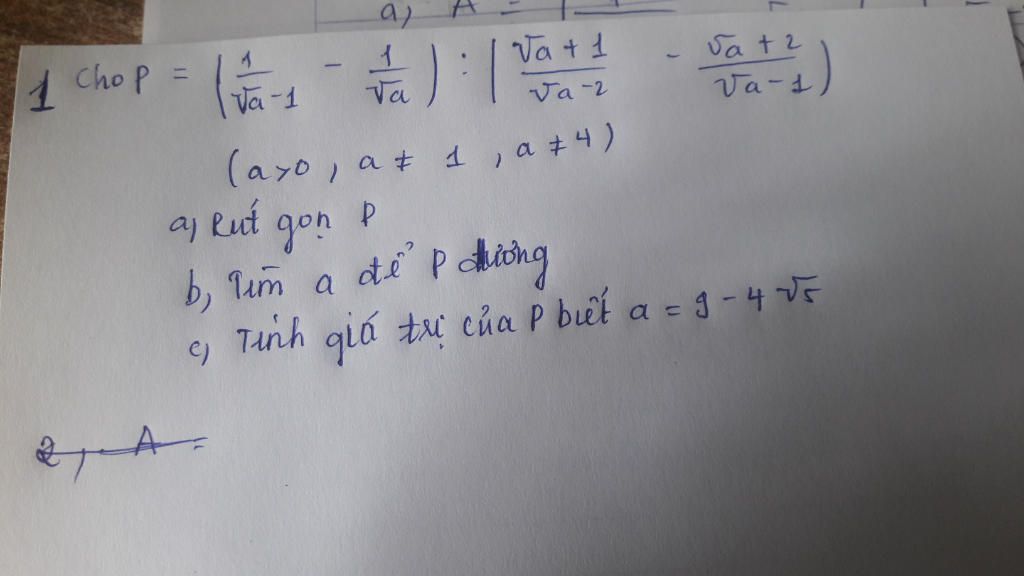 a, A =
1 Cho P = (1/(√a - 1) - 1/√a) : ((√a + 1)/(√a - 2) - (√a + 2)/(√a - 1))
(a>0, a ≠ 1, a ≠ 4)
a, Rút gọn P
b, Tìm a để P dương
c, Tính giá trị của P biết a = 9 - 4√5
2, A =